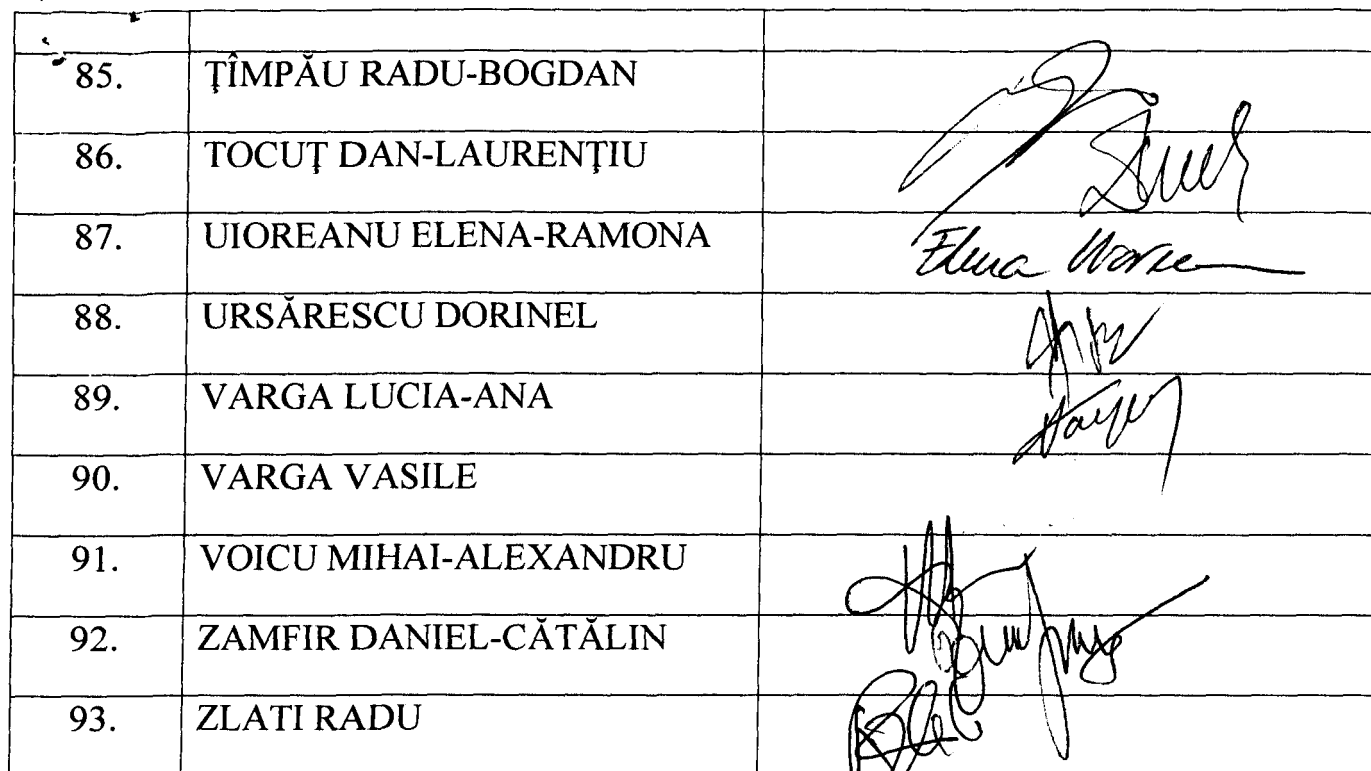 85. ŢÎMPĂU RADU-BOGDAN
86. TOCUŢ DAN-LAURENŢIU
87. UIOREANU ELENA-RAMONA Elena
88. URSĂRESCU DORINEL
89. VARGA LUCIA-ANA
90. VARGA VASILE
91. VOICU MIHAI-ALEXANDRU
92. ZAMFIR DANIEL-CĂTĂLIN
93. ZLATI RADU